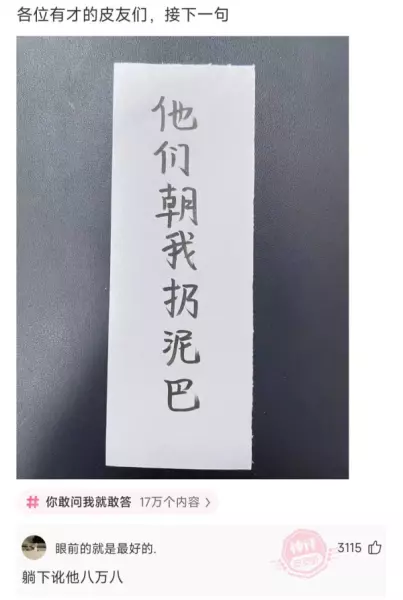 各位有才的皮友们，接下一句
他们朝我扔泥巴
# 你敢问我就敢答 17万个内容 >
眼前的就是最好的.
3115
躺下讹他八万八